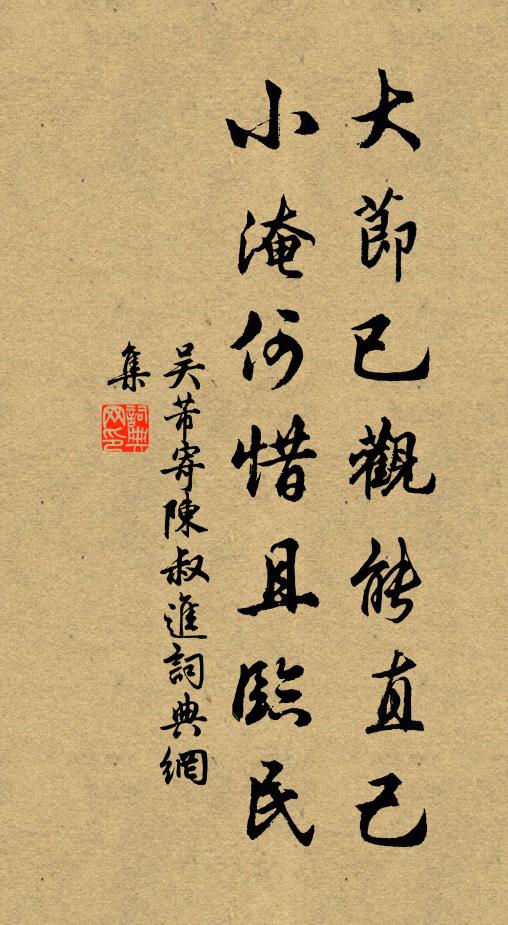 大節已觀能直己
小淹何惜且臨民
吴芾寄陳叔進詞典網
集
詞典網印